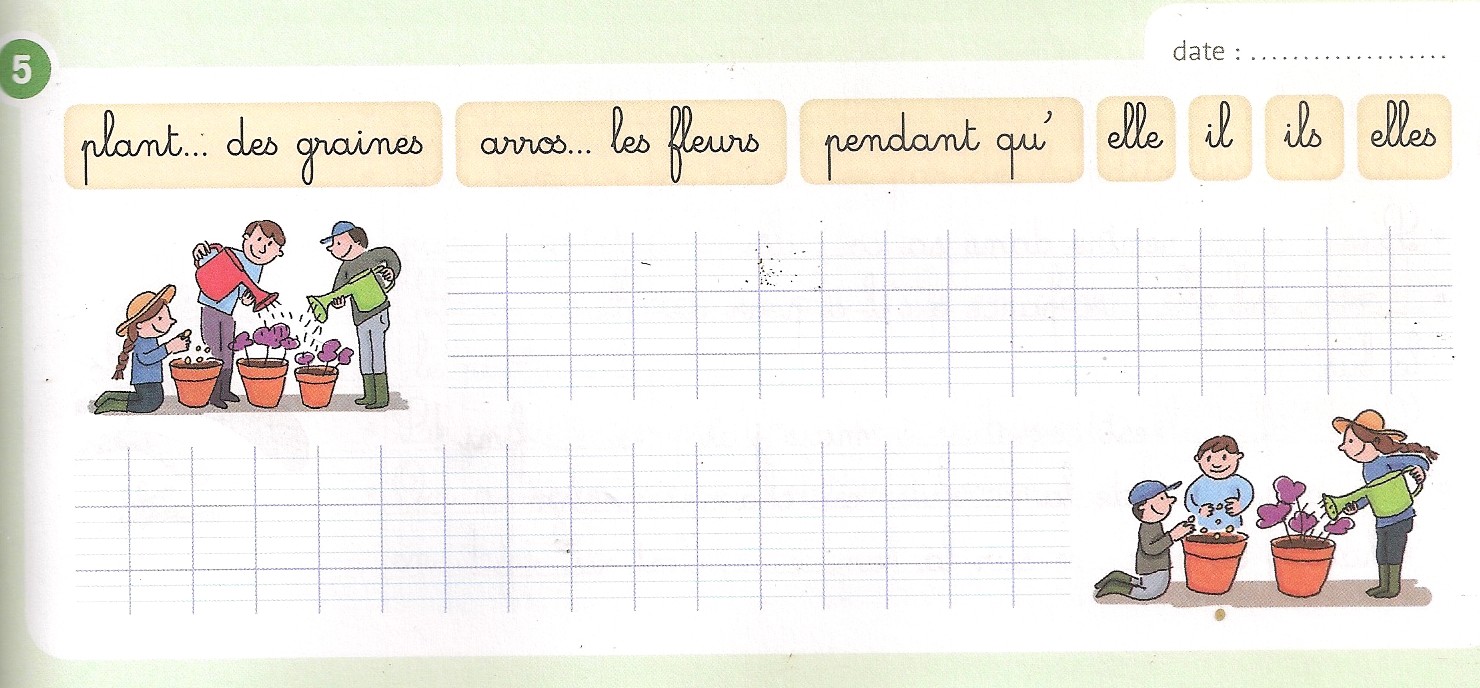 date : ...................
5
plant... des graines arros... les fleurs pendant qu' elle il ils elles